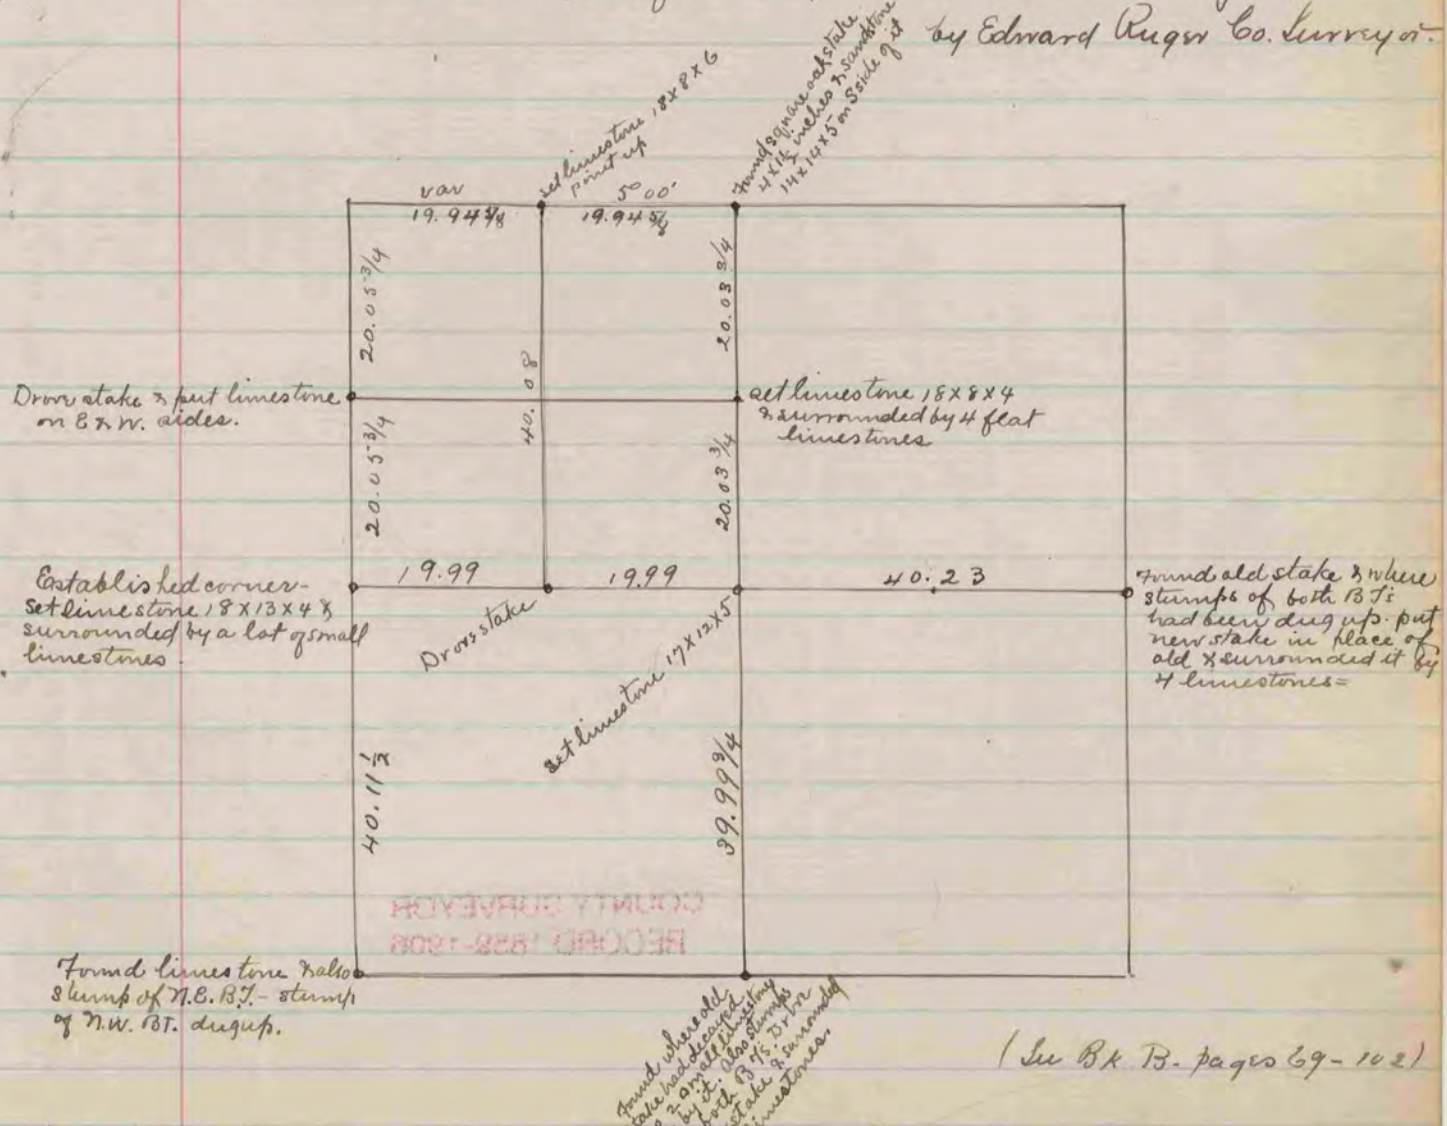 by Edward Ruger Co. Surveyor.
set limestone 18 x 8 x 6
point up
Found square oak stake
4 x 1½ inches & sandstone
14 x 14 x 5 on S side of it
var
5° 00'
19.94 ⅝
19.94 ⅝
20.05 3/4
20.03 3/4
Drove stake & put limestone
on E & W. sides.
40.08
set limestone 18 x 8 x 4
& surrounded by 4 flat
limestones
20.05 3/4
20.03 3/4
19.99
19.99
40.23
Established corner-
set limestone 18 x 13 x 4 &
surrounded by a lot of small
limestones.
Drove stake
set limestone 17 x 12 x 5
Found old stake & where
stumps of both BT's
had been dug up. put
new stake in place of
old & surrounded it by
4 limestones =
40.11 ½
39.99 3/4
COUNTY SURVEYOR
RECORD 1859-1908
Found limestone & also
stump of N.E. B.T. - stump
of N.W. BT. dug up.
Found where old
stake had decayed
2 small limestones
by it. also stumps
both BT's. Drove
stake & surrounded
limestones
(See BK B. pages 69-102)